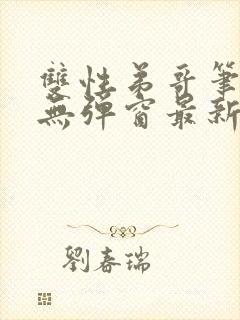 雙性弟哥筆
無彈窗最新
劉春瑞